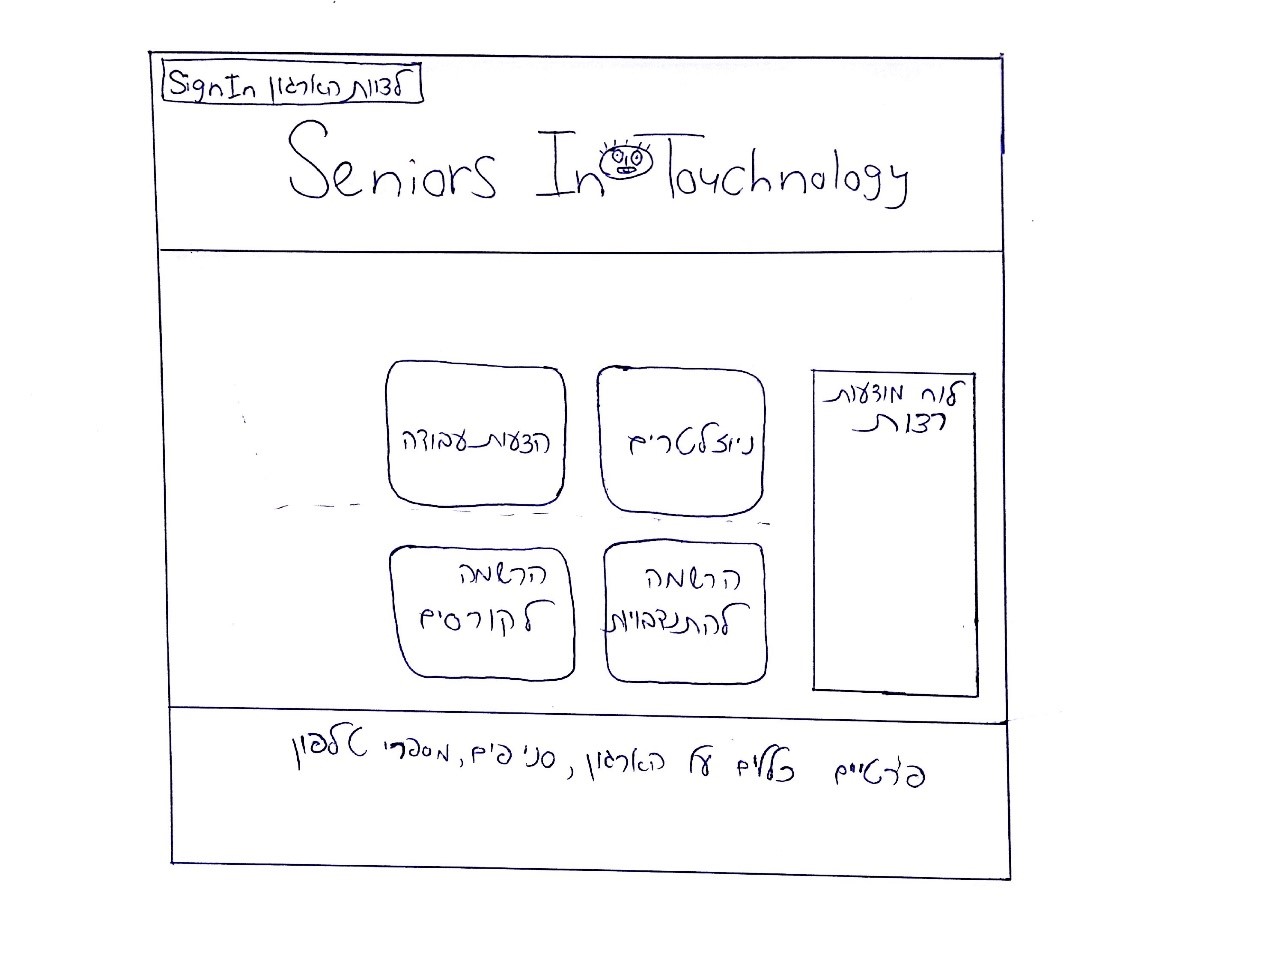 לצוות הארגון Sign In
Seniors In Touchnology
לוח מודעות
רצות
ניוזלטרים
הצעות עבודה
הרשמה
להתנדבויות
הרשמה
לקורסים
פרטיים כללים על הארגון, סניפים, מספרי טלפון